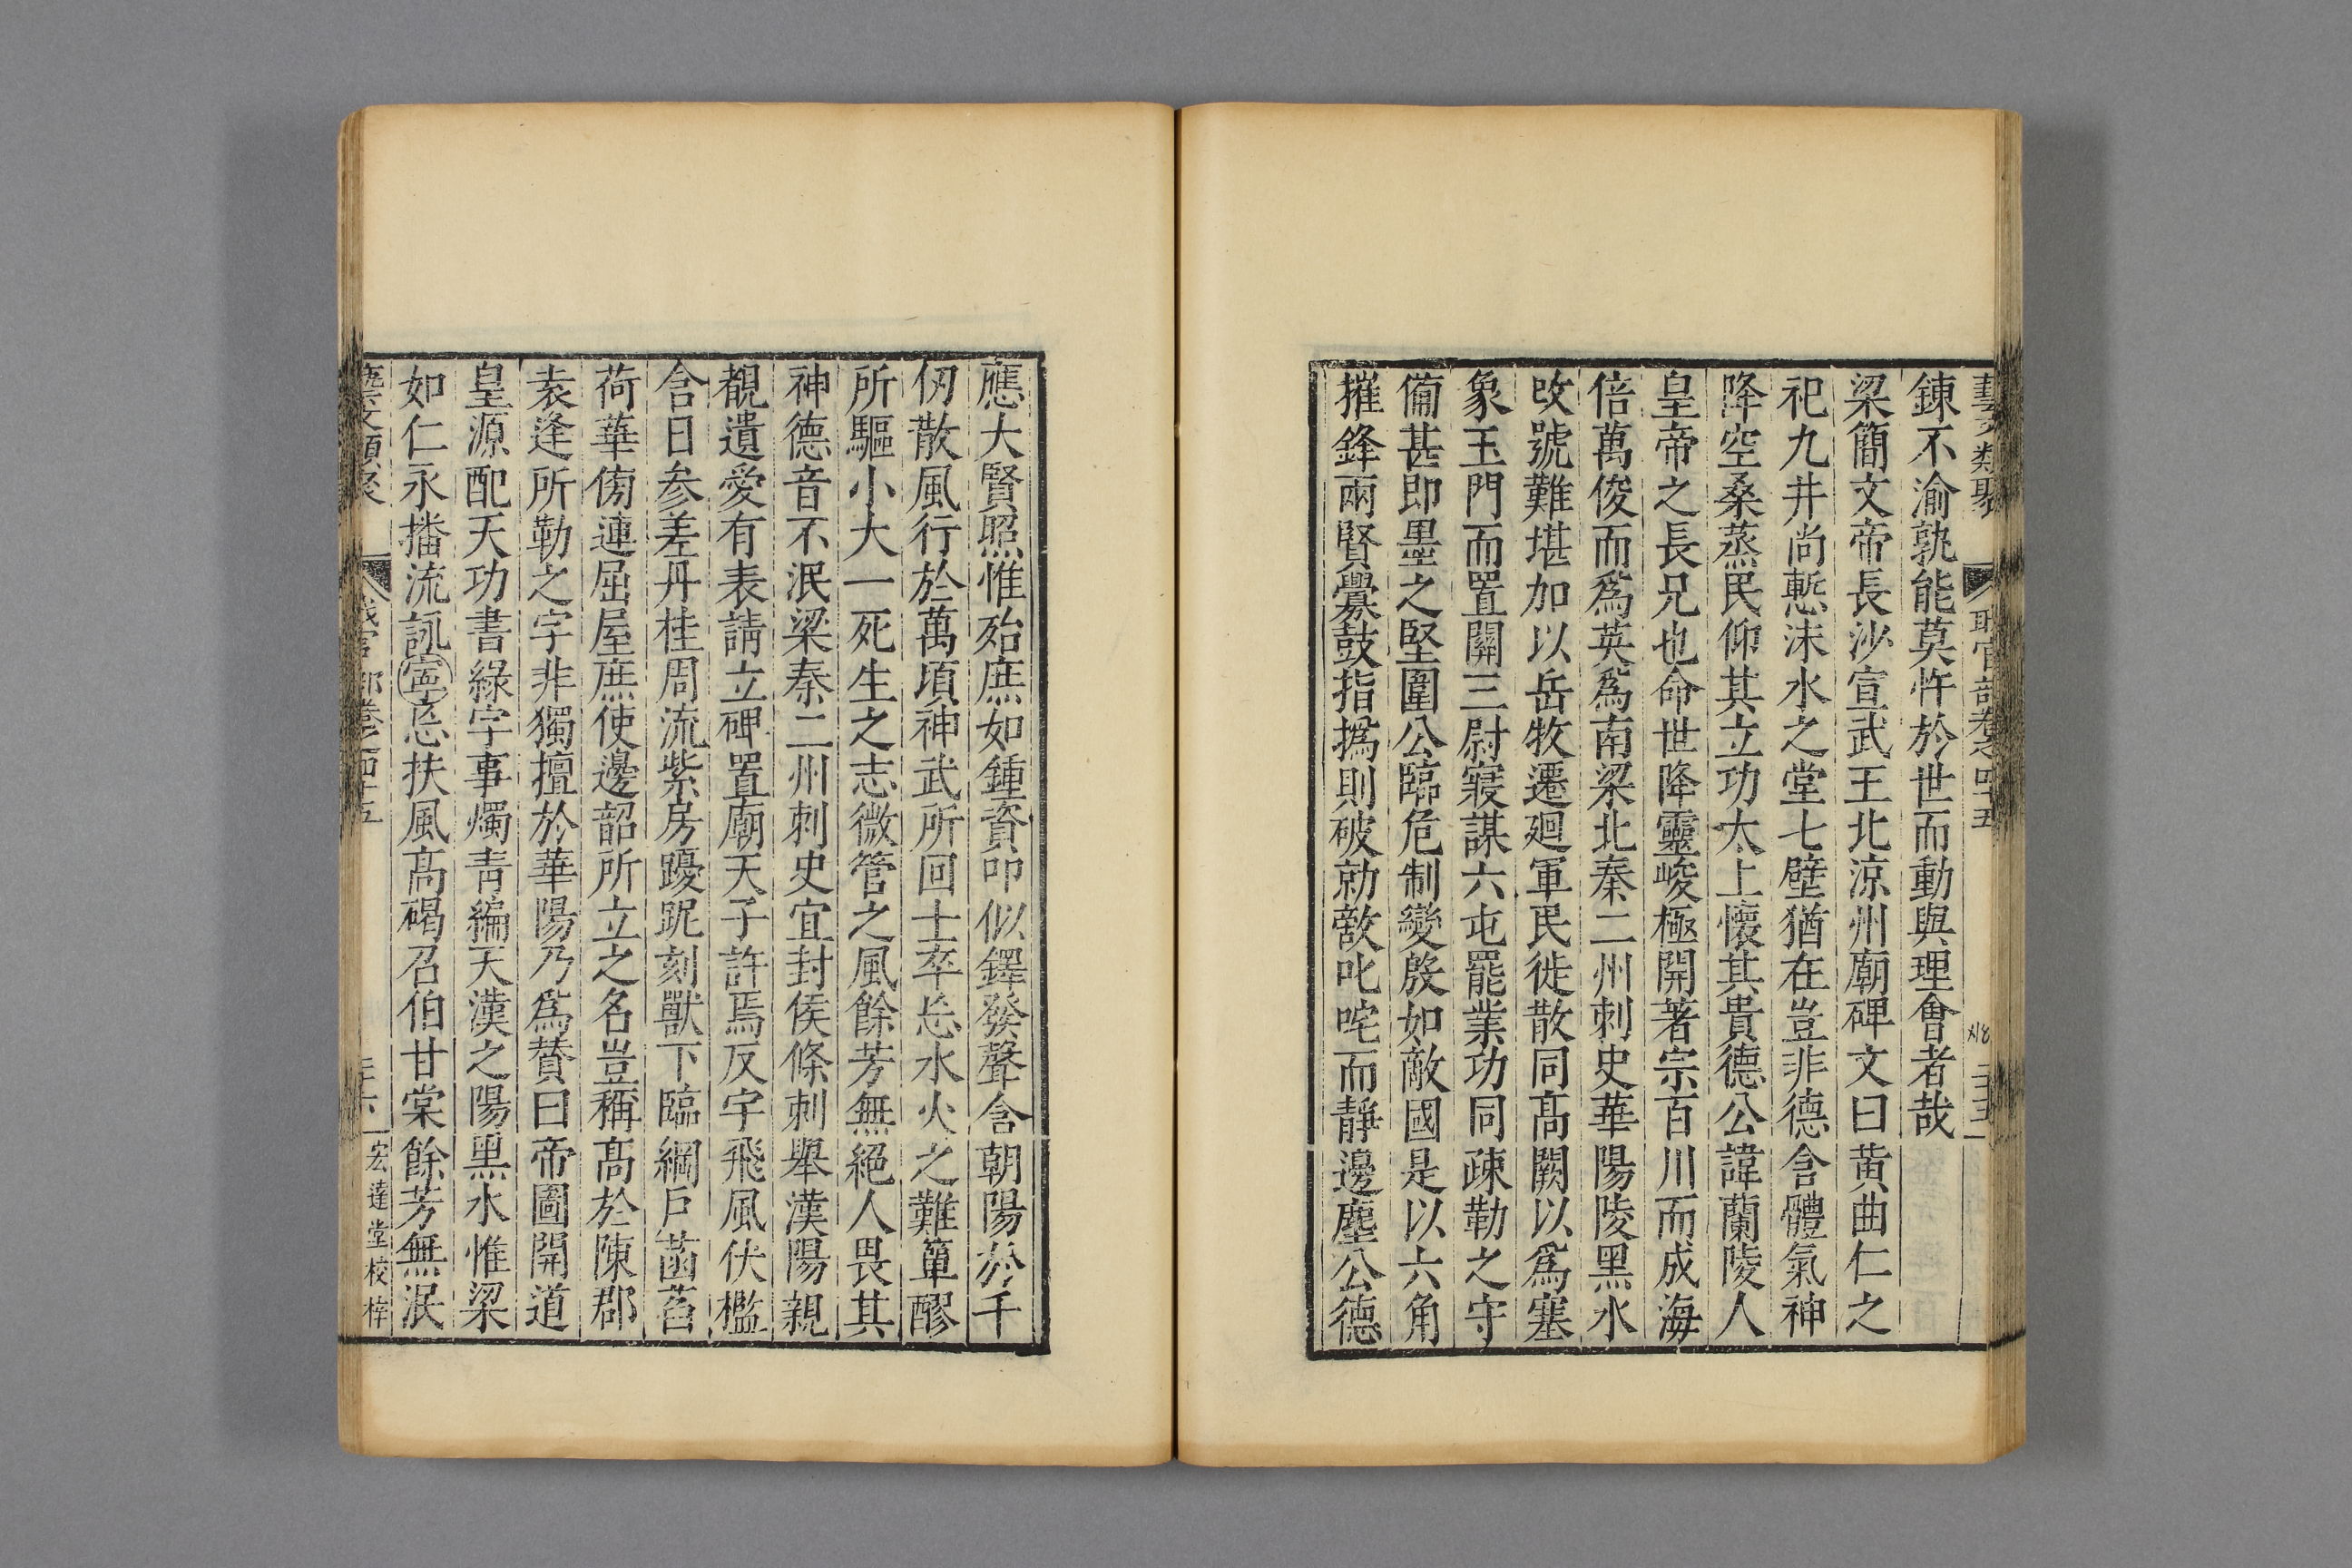 藝文類聚 職官部卷之四十五
鍊不渝孰能莫忤於世而動與理會者哉
梁簡文帝長沙宣武王北涼州廟碑文曰黄曲仁之
祀九井尚慙沫水之堂七壁猶在豈非德含體氣神
降空桑蒸民仰其立功太上懷其貴德公諱蘭陵人
皇帝之長兄也命世降靈峻極開著宗百川而成海
倍萬俊而爲英爲南梁北秦二州刺史華陽陵黑水
改號難堪加以岳牧遷廻軍民徙散同髙闕以爲塞
象玉門而置關三尉寢謀六屯罷業功同疎勒之守
備甚即墨之堅圍公臨危制變殷如敵國是以六角
摧鋒兩賢釁鼓指撝則破勍敵叱咤而静邊塵公德
應大賢照惟殆庶如鍾資卬似鐸發聲含朝陽於千
仞散風行於萬頃神武所回士卒忘水火之難簞醪
所驅小大一死生之志微管之風餘芳無絕人畏其
神德音不泯梁秦二州刺史宜封侯條刺舉漢陽親
覩遺愛有表請立碑置廟天子許焉反宇飛風伏檻
含日參差丹桂周流紫房躨跜刻獸下臨網戶菡萏
荷華傍連屈屋庶使邊韶所立之名豈稱髙於陳郡
袁逢所勒之字非獨擅於華陽乃爲贊曰帝圖開道
皇源配天功書綠字事燭青編天漢之陽黒水惟梁
如仁永播流訊寧忘扶風髙碣召伯甘棠餘芳無泯
藝文類聚 職官部卷之四十五 三十六 宏達堂校梓